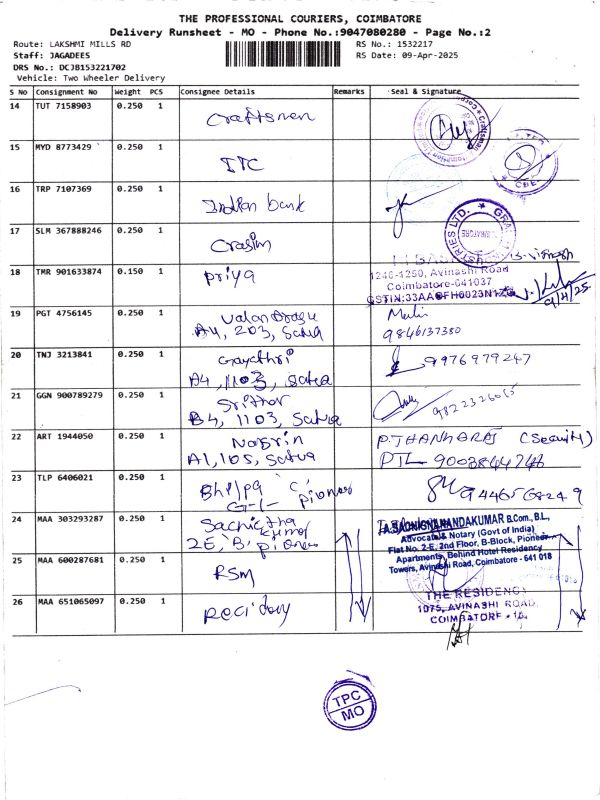 THE PROFESSIONAL COURIERS, COIMBATORE
Delivery Runsheet - MO - Phone No.:9047080280 - Page No.:2
Route: LAKSHMI MILLS RD
RS No.: 1532217
Staff: JAGADEES
RS Date: 09-Apr-2025
DRS No.: DCJB153221702
Vehicle: Two Wheeler Delivery
S No Consignment No Weight PCS Consignee Details Remarks Seal & Signature
14 TUT 7158903 0.250 1 Craftsmen
15 MYD 8773429 0.250 1 ITC
16 TRP 7107369 0.250 1 Indian bank
17 SLM 367888246 0.250 1 Grasim
18 TMR 901633874 0.150 1 Priya
1246-1250, Avinashi Road
Coimbatore-641037
9/4/25
19 PGT 4756145 0.250 1
A4, 203, Satva
9846137380
20 TNJ 3213841 0.250 1 Gayathri 9976979247
A4, 1103, Satva
21 GGN 900789279 0.250 1 Srithar
B4, 1103, Satva
22 ART 1944050 0.250 1 Nasrin P.THANHARAJ (Security)
A1, 105, Satva
23 TLP 6406021 0.250 1 Shilpa 'C'
G-1- Pioneer
24 MAA 303293287 0.250 1
2E, 'B', Pioneer
A.SACHIGNANANDAKUMAR B.Com., B.L.,
Advocate & Notary (Govt of India)
Flat No. 2-E, 2nd Floor, B-Block, Pioneer
Apartments, Behind Hotel Residency
Towers, Avinashi Road, Coimbatore - 641 018
25 MAA 600287681 0.250 1 RSM
26 MAA 651065097 0.250 1
THE RESIDENCY
1075, AVINASHI ROAD,
COIMBATORE - 18.
TPC
MO